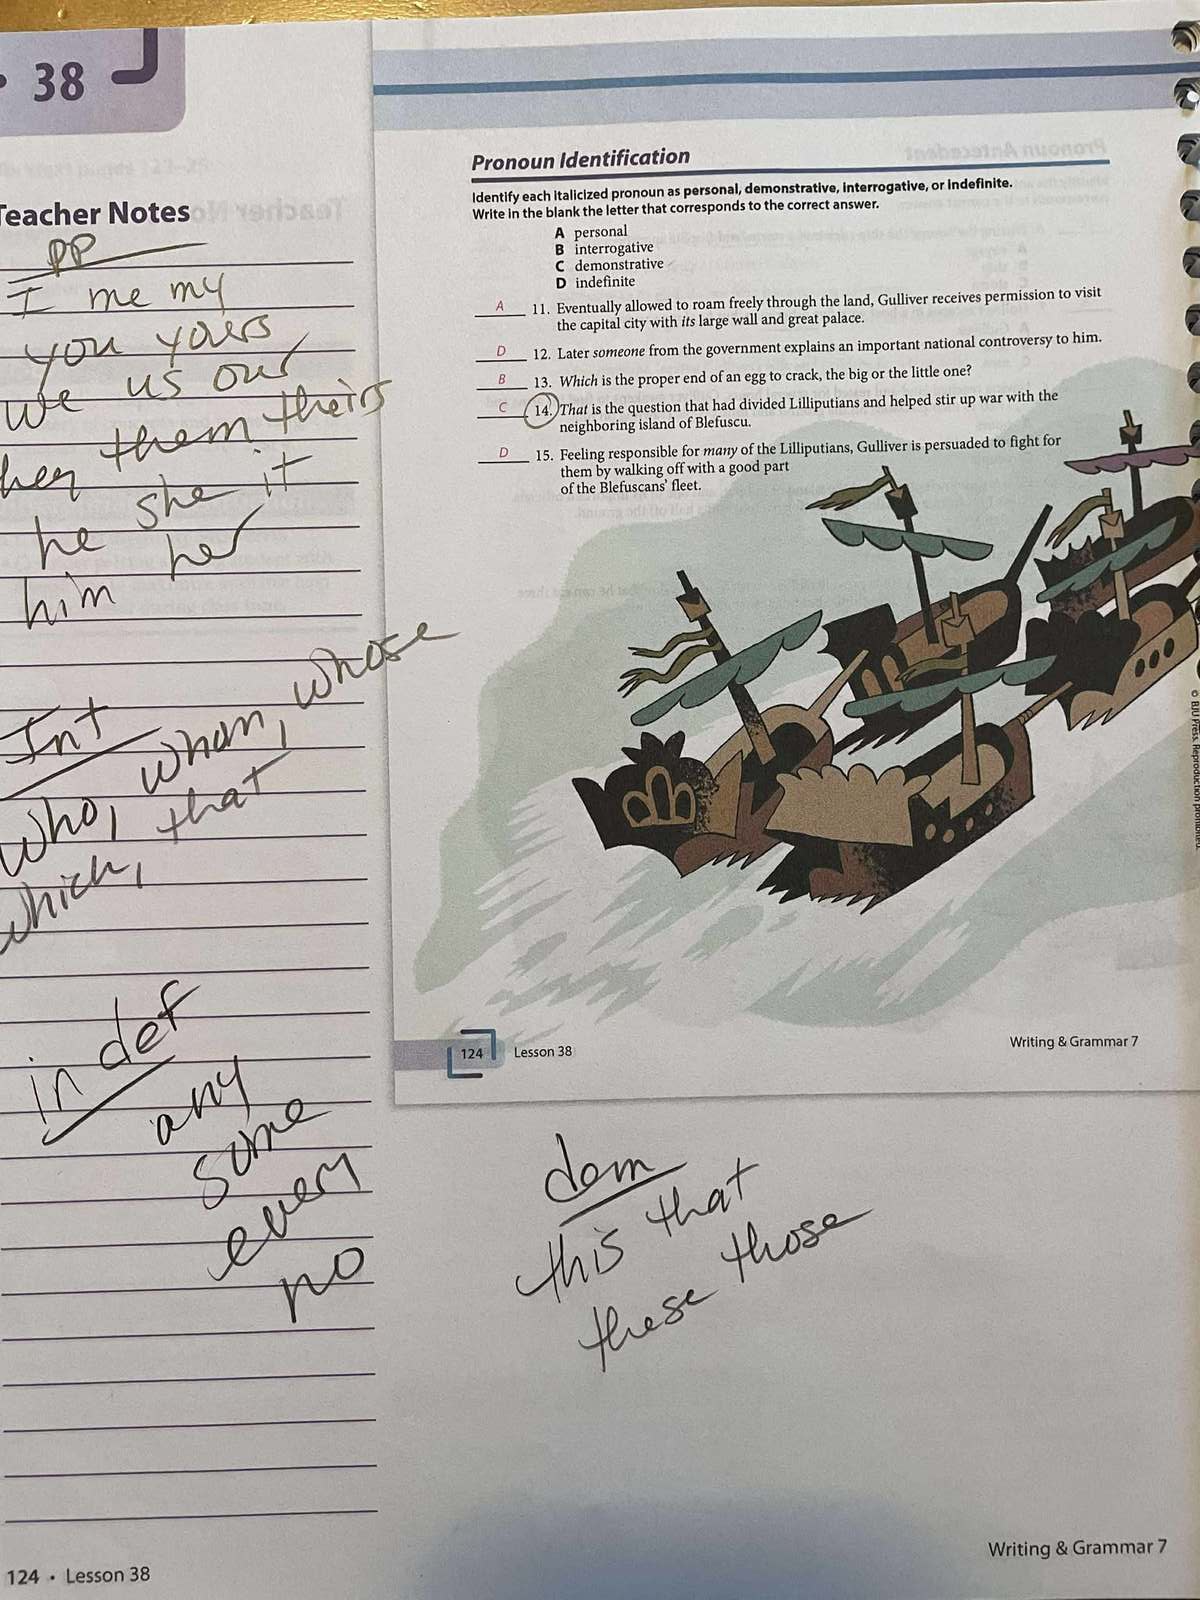 • 38
Teacher Notes
PP
I me my
you yours
we us our
her them theirs
he she it
him her
Int
who, whom, whose
which, that
indef
any
some
every
no
Pronoun Identification
Identify each italicized pronoun as personal, demonstrative, interrogative, or indefinite.
Write in the blank the letter that corresponds to the correct answer.
A personal
B interrogative
C demonstrative
D indefinite
A 11. Eventually allowed to roam freely through the land, Gulliver receives permission to visit
the capital city with its large wall and great palace.
D 12. Later someone from the government explains an important national controversy to him.
B 13. Which is the proper end of an egg to crack, the big or the little one?
C 14. That is the question that had divided Lilliputians and helped stir up war with the
neighboring island of Blefuscu.
D 15. Feeling responsible for many of the Lilliputians, Gulliver is persuaded to fight for
them by walking off with a good part
of the Blefuscans' fleet.
© BJU Press. Reproduction prohibited.
124 Lesson 38
Writing & Grammar 7
dem
this that
these those
Writing & Grammar 7
124 • Lesson 38